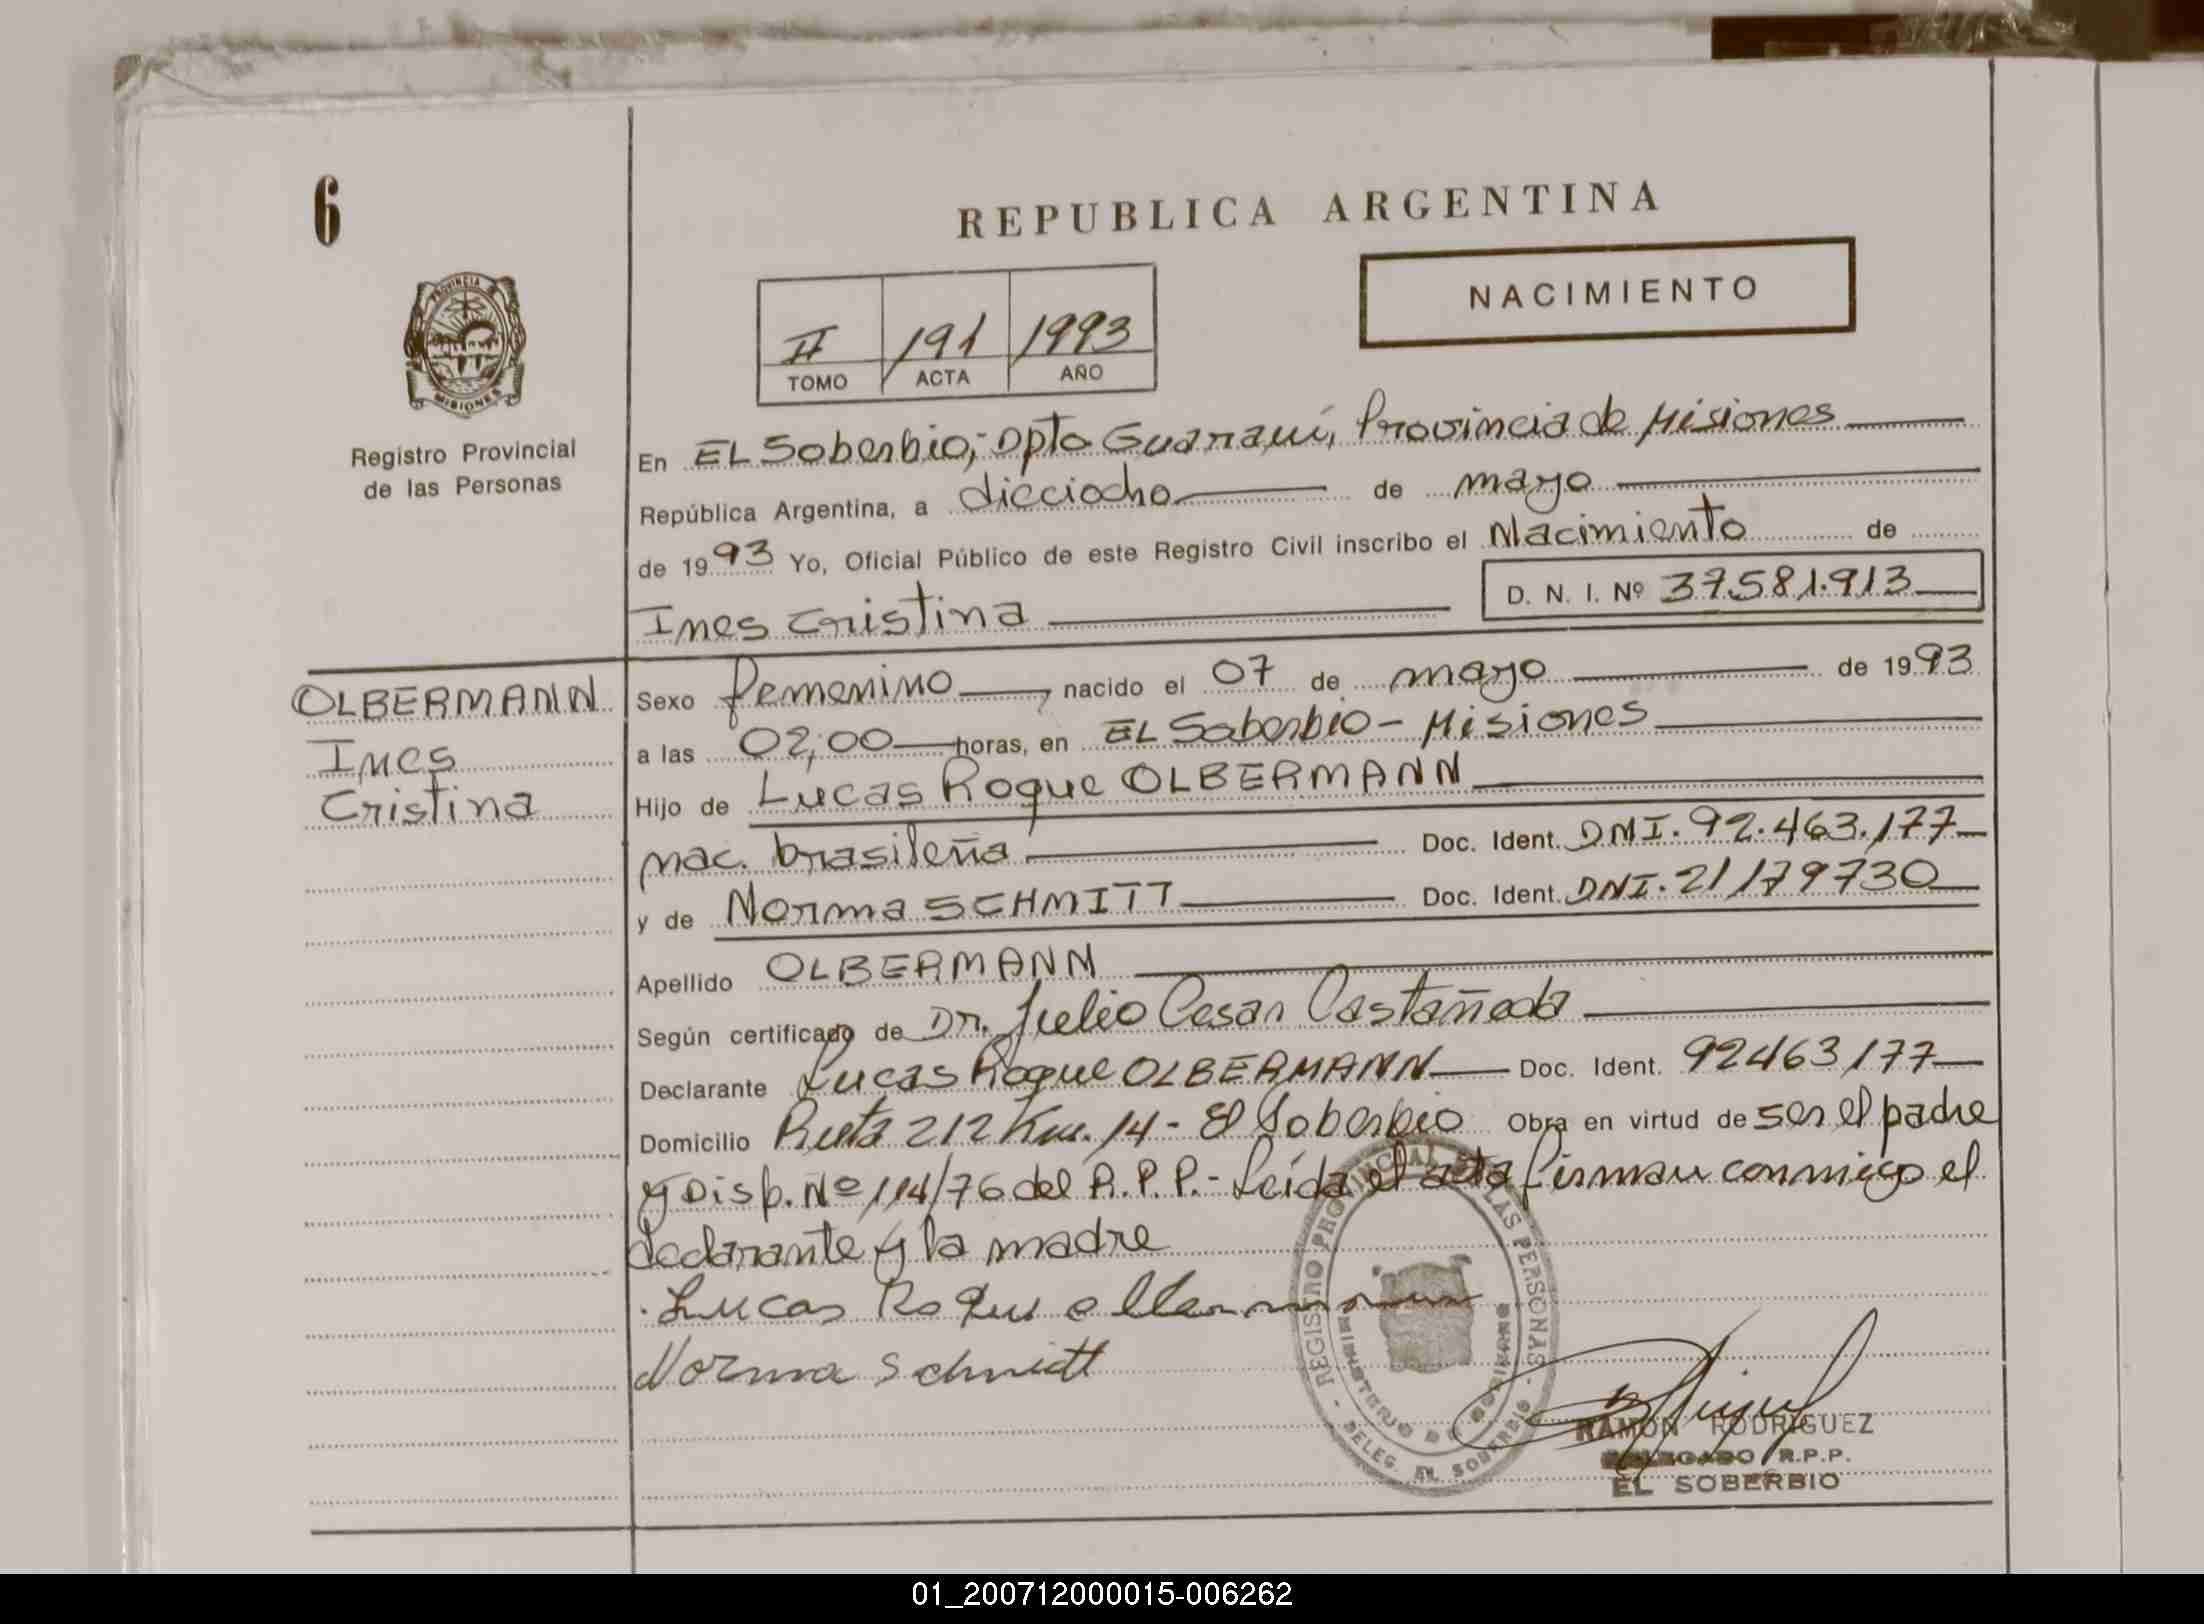 6
REPUBLICA ARGENTINA
NACIMIENTO
II 191 1993
TOMO ACTA AÑO
PROVINCIA DE
MISIONES
Registro Provincial
de las Personas
En EL Soberbio, Dpto Guaraní, Provincia de Misiones
República Argentina, a dieciocho de mayo
de 1993 Yo, Oficial Público de este Registro Civil inscribo el Nacimiento de
Ines Cristina D. N. I. Nº 37.581.913
OLBERMANN
Ines
Cristina
Sexo femenino, nacido el 07 de mayo de 1993
a las 02,00 horas, en EL Soberbio - Misiones
Hijo de Lucas Roque OLBERMANN
nac. brasileña Doc. Ident. DNI. 92.463.177
y de Norma SCHMITT Doc. Ident. DNI. 21179730
Apellido OLBERMANN
Según certificado de Dr. Julio Cesar Castañeda
Declarante Lucas Roque OLBERMANN Doc. Ident. 92463177
Domicilio Ruta 212 Km. 14 - El Soberbio Obra en virtud de ser el padre
y Disp. Nº 114/76 del R.P.P.- Leída el acta firman conmigo el
declarante y la madre
Lucas Roque
Norma Schmitt
REGISTRO PROVINCIAL DE LAS PERSONAS
MINISTERIO DE GOBIERNO
- DELEG. EL SOBERBIO -
RAMON RODRIGUEZ
DELEGADO R.P.P.
EL SOBERBIO
01_200712000015-006262